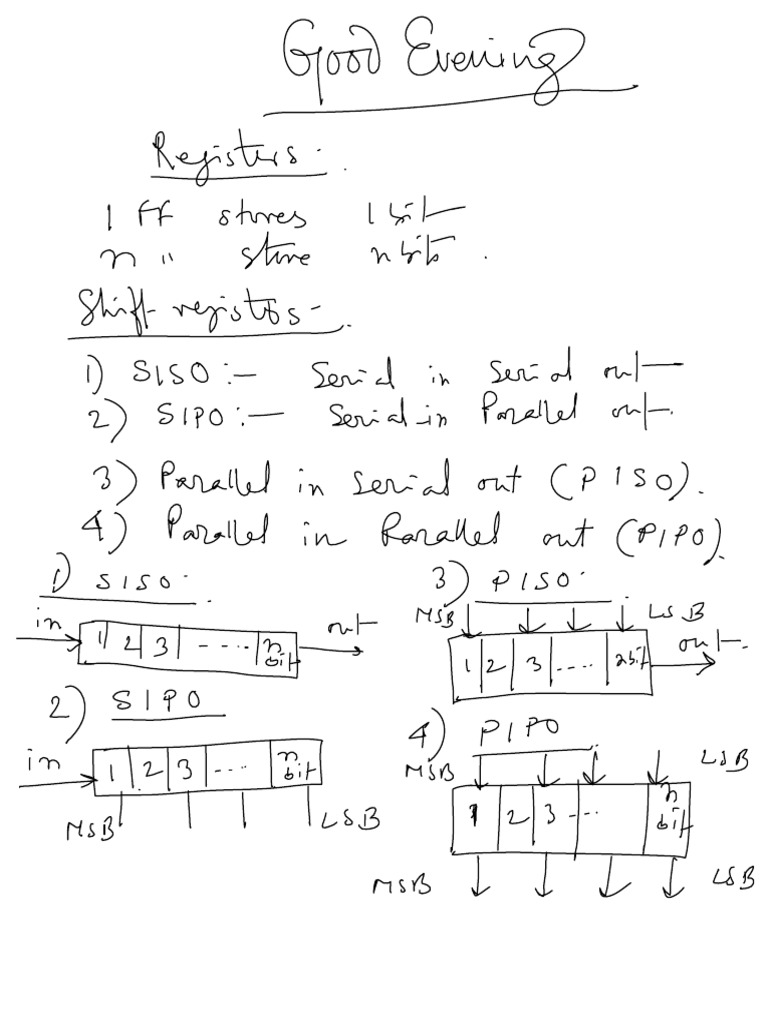 Good Evening
Registers :
1 FF stores 1 bit
n " store n bits .
Shift registers -
1) SISO :- Serial in Serial out
2) SIPO :- Serial in Parallel out.
3) Parallel in Serial out (PISO).
4) Parallel in Parallel out (PIPO).
1) SISO :
in 1 2 3 - - ... n bit out
2) SIPO
in 1 2 3 - ... n bit
MSB LSB
3) PISO :
MSB LSB
1 2 3 .... n bit out
4) PIPO
MSB LSB
1 2 3 - - .. n bit
MSB LSB